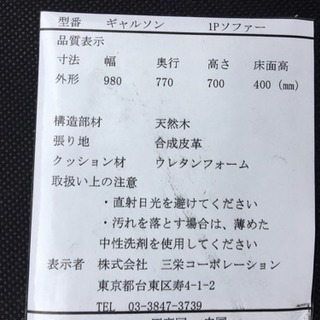 型番　ギャルソン　1Pソファー
品質表示
寸法　幅　奥行　高さ　床面高
外形　980　770　700　400 (mm)
構造部材　天然木
張り地　合成皮革
クッション材　ウレタンフォーム
取扱い上の注意
・直射日光を避けてください
・汚れを落とす場合は、薄めた
中性洗剤を使用してください
表示者　株式会社　三栄コーポレーション
東京都台東区寿4-1-2
TEL　03-3847-3739